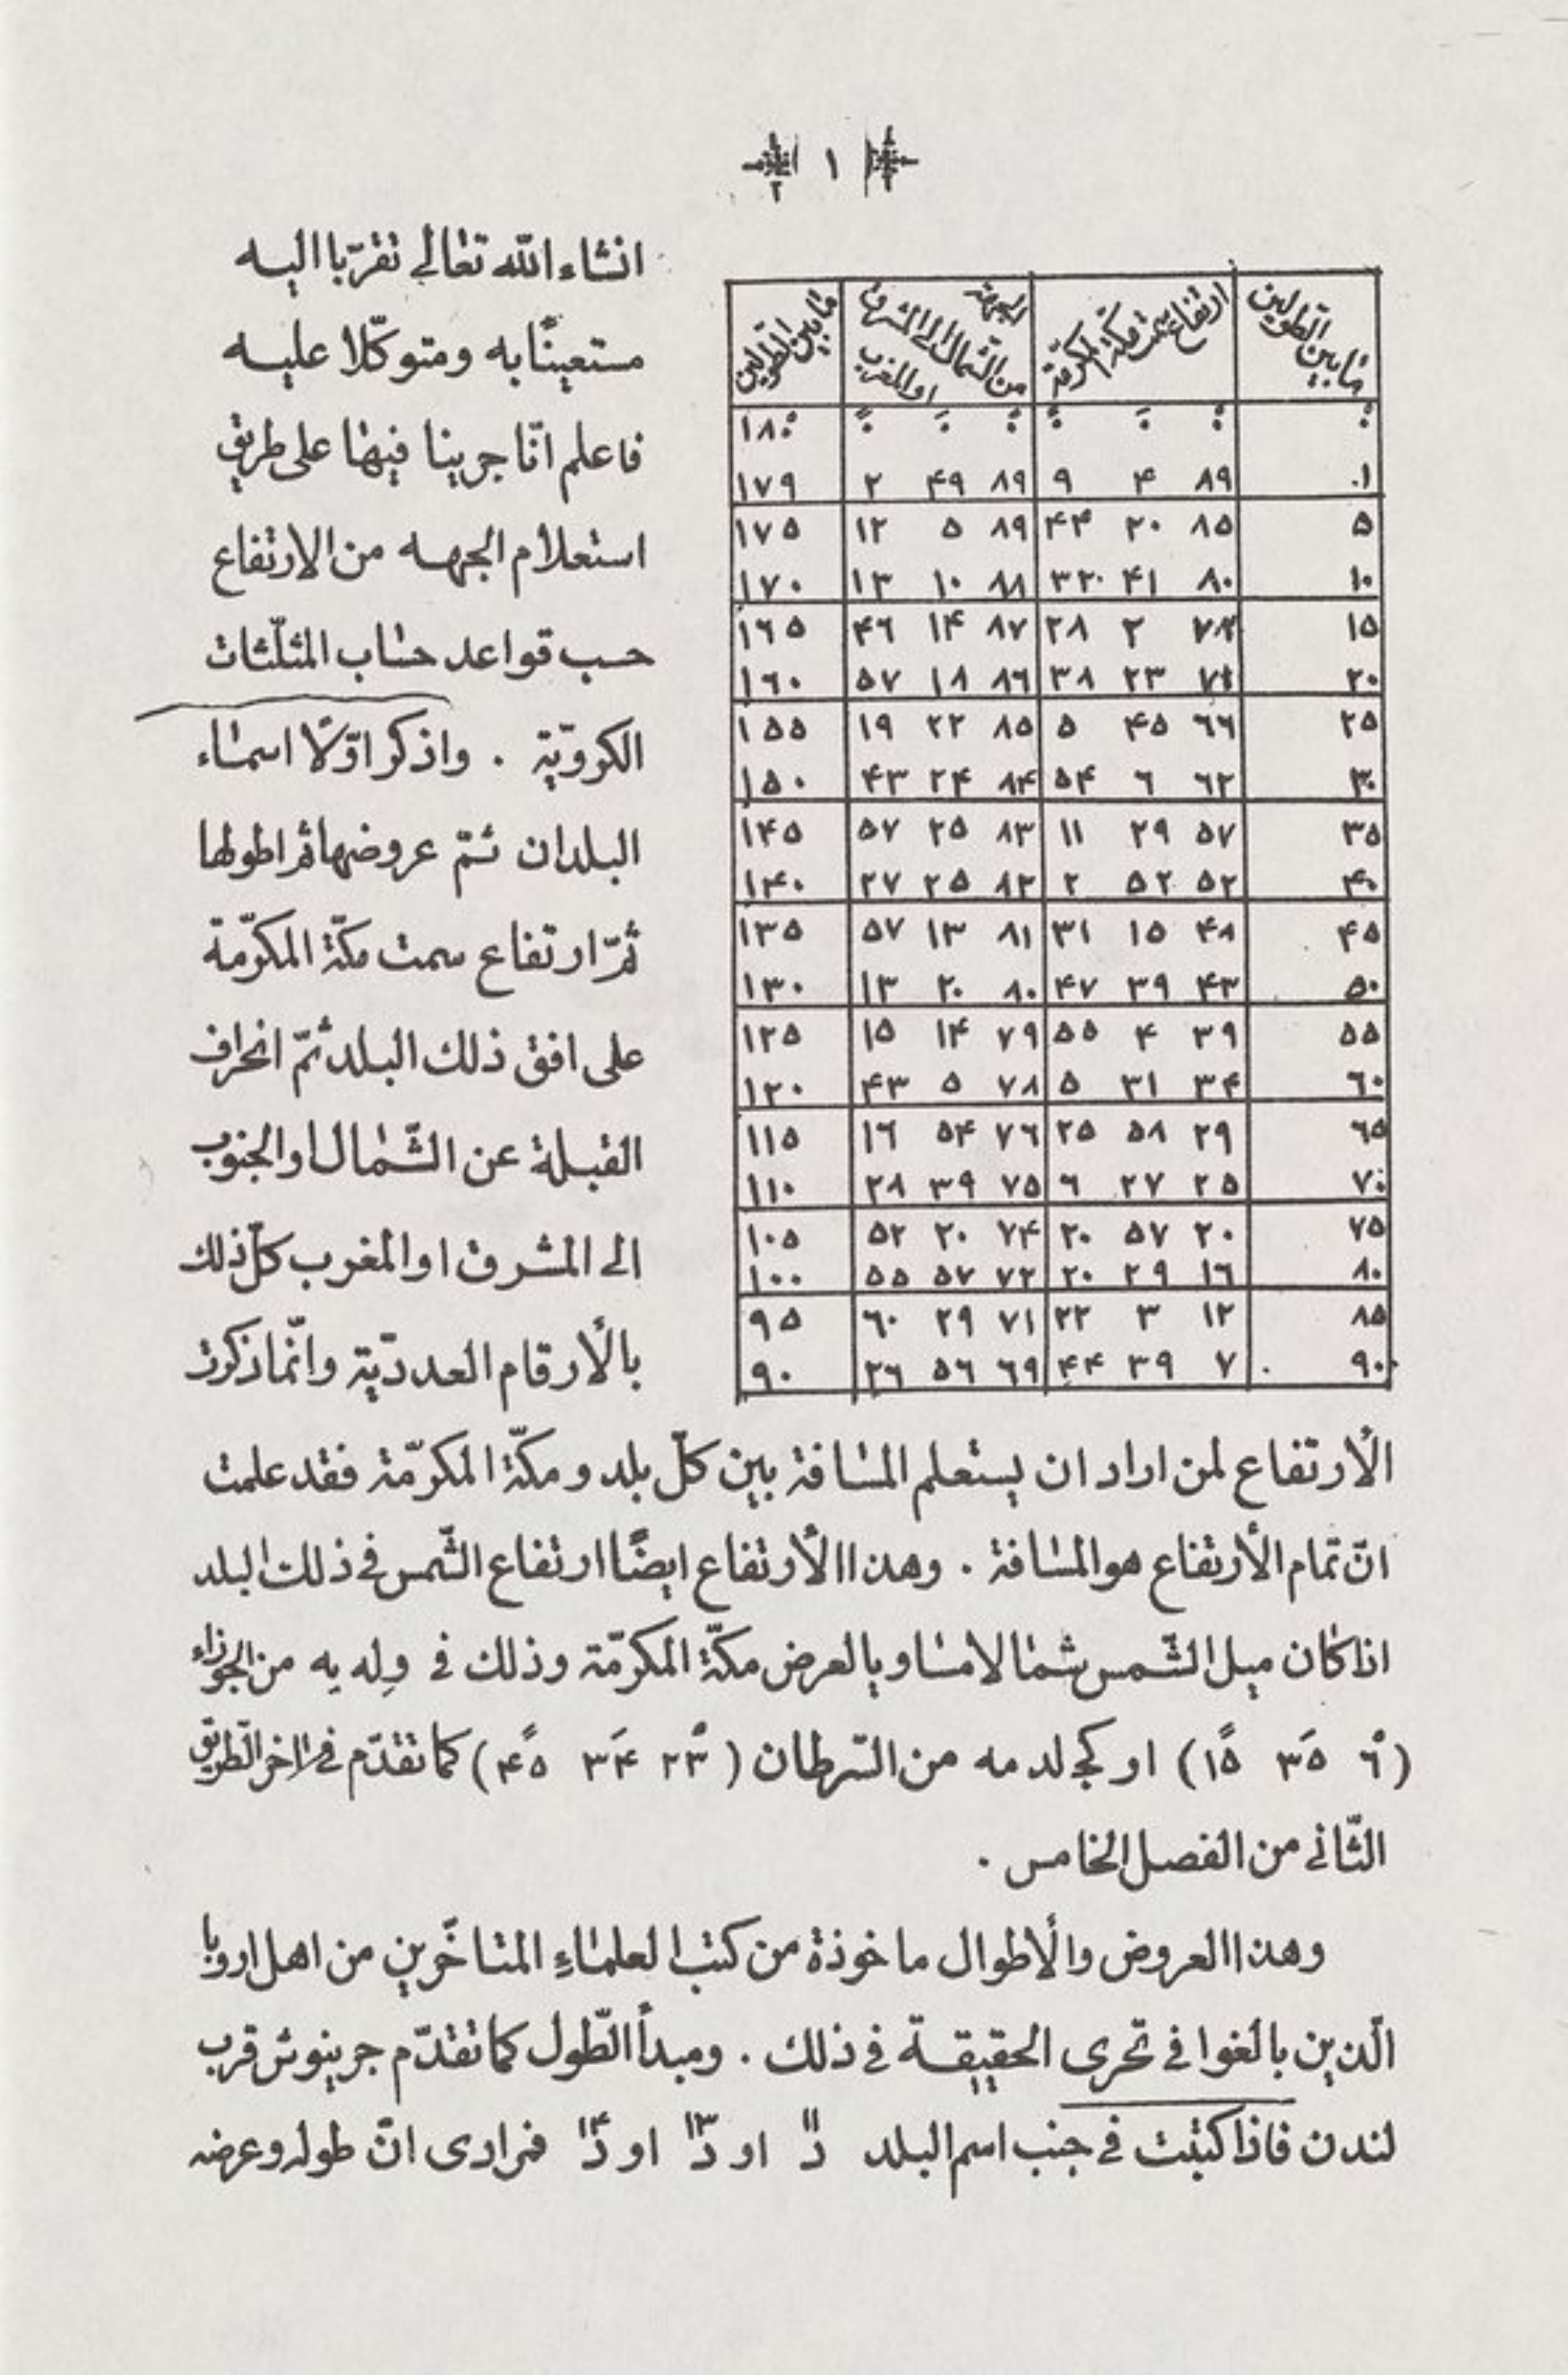 ١
٢
انشاء الله تعالى تقرّبا اليه
مستعينًا به ومتوكّلا عليه
فاعلم انّا جرينا فيها على طريق
استعلام الجهه من الارتفاع
حسب قواعد حساب المثلّثات
الكرويّة . واذكر اوّلًا اسماء
البلدان ثمّ عروضها ثم اطوالها
ثمّ ارتفاع سمت مكّة المكرّمة
على افق ذلك البلد ثمّ انحراف
القبلة عن الشّمال او الجنوب
الى المشرق او المغرب كلّ ذلك
بالأرقام العدديّة وانّما ذكرت
ما بين الطولين ارتفاع سمت مكّة المكرّمة الجهة من الشّمال الى المشرق او المغرب ما بين الطولين
٠ ٠ ٠ ٠ ٠ ٠ ٠ ١٨٠
١ ٨٩ ۴ ٩ ٨٩ ۴٩ ٢ ١٧٩
۵ ٨۵ ٢٠ ۴۴ ٨٩ ۵ ١٢ ١٧۵
١٠ ٨٠ ۴١ ٣٢ ٨٨ ١٠ ١٣ ١٧٠
١۵ ٢ ٢٨ ٨٧ ١۴ ۴٦ ١٦۵
٢٠ ٧١ ٢٣ ٣٨ ٨٦ ١٨ ۵٧ ١٦٠
٢۵ ٦٦ ۴۵ ۵ ٨۵ ٢٢ ١٩ ١۵۵
٣٠ ٦٢ ٦ ۵۴ ٨۴ ٢۴ ۴٣ ١۵٠
٣۵ ۵٧ ٢٩ ١١ ٨٣ ٢۵ ۵٧ ١۴۵
۴٠ ۵٢ ۵٢ ٢ ٨٢ ٢۵ ٢٧ ١۴٠
۴۵ ۴٨ ١۵ ٣١ ٨١ ١٣ ۵٧ ١٣۵
۵٠ ۴٣ ٣٩ ۴٧ ٨٠ ٢٠ ١٣ ١٣٠
۵۵ ٣٩ ۴ ۵۵ ٧٩ ١۴ ١۵ ١٢۵
٦٠ ٣۴ ٣١ ۵ ٧٨ ۵ ۴٣ ١٢٠
٦۵ ٢٩ ۵٨ ٢۵ ٧٦ ۵۴ ١٦ ١١۵
٧٠ ٢۵ ٢٧ ٦ ٧۵ ٣٩ ٢٨ ١١٠
٧۵ ٢٠ ۵٧ ٢٠ ٧۴ ٢٠ ۵٢ ١٠۵
٨٠ ١٦ ٢٩ ٢٠ ٧٢ ۵٧ ۵۵ ١٠٠
٨۵ ١٢ ٣ ٢٢ ٧١ ٢٩ ٦٠ ٩۵
٩٠ ٧ ٣٩ ۴۴ ٦٩ ۵٦ ٢٦ ٩٠
الأرتفاع لمن اراد ان يستعلم المسافة بين كلّ بلد ومكّة المكرّمة فقد علمت
انّ تمام الأرتفاع هو المسافة . وهذا الأرتفاع ايضًا ارتفاع الشّمس فى ذلك البلد
اذا كان ميل الشّمس شمالا مساويا لعرض مكّة المكرّمة وذلك فى و له يه من الجوزاء
(٦° ٣۵َ ١۵ً) او كج لد مه من السّرطان (٢٣° ٣۴َ ۴۵ً) كما تقدّم فى اخر الطّريق
الثّانى من الفصل الخامس .
وهذا العروض والأطوال ماخوذة من كتب العلماءِ المتاخّرين من اهل اروبا
الّذين بالغوا فى تحرى الحقيقة فى ذلك . ومبدأ الطّول كما تقدّم جرينوش قرب
لندن فاذا كتبت فى جنب اسم البلد د١١ او د١٣ او د١۴ فمرادى انّ طوله وعرضه